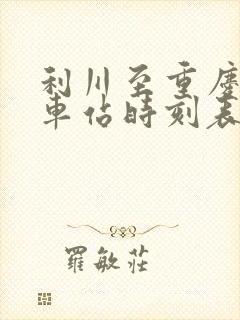 利川至重慶
車佔時刻表
羅敏莊